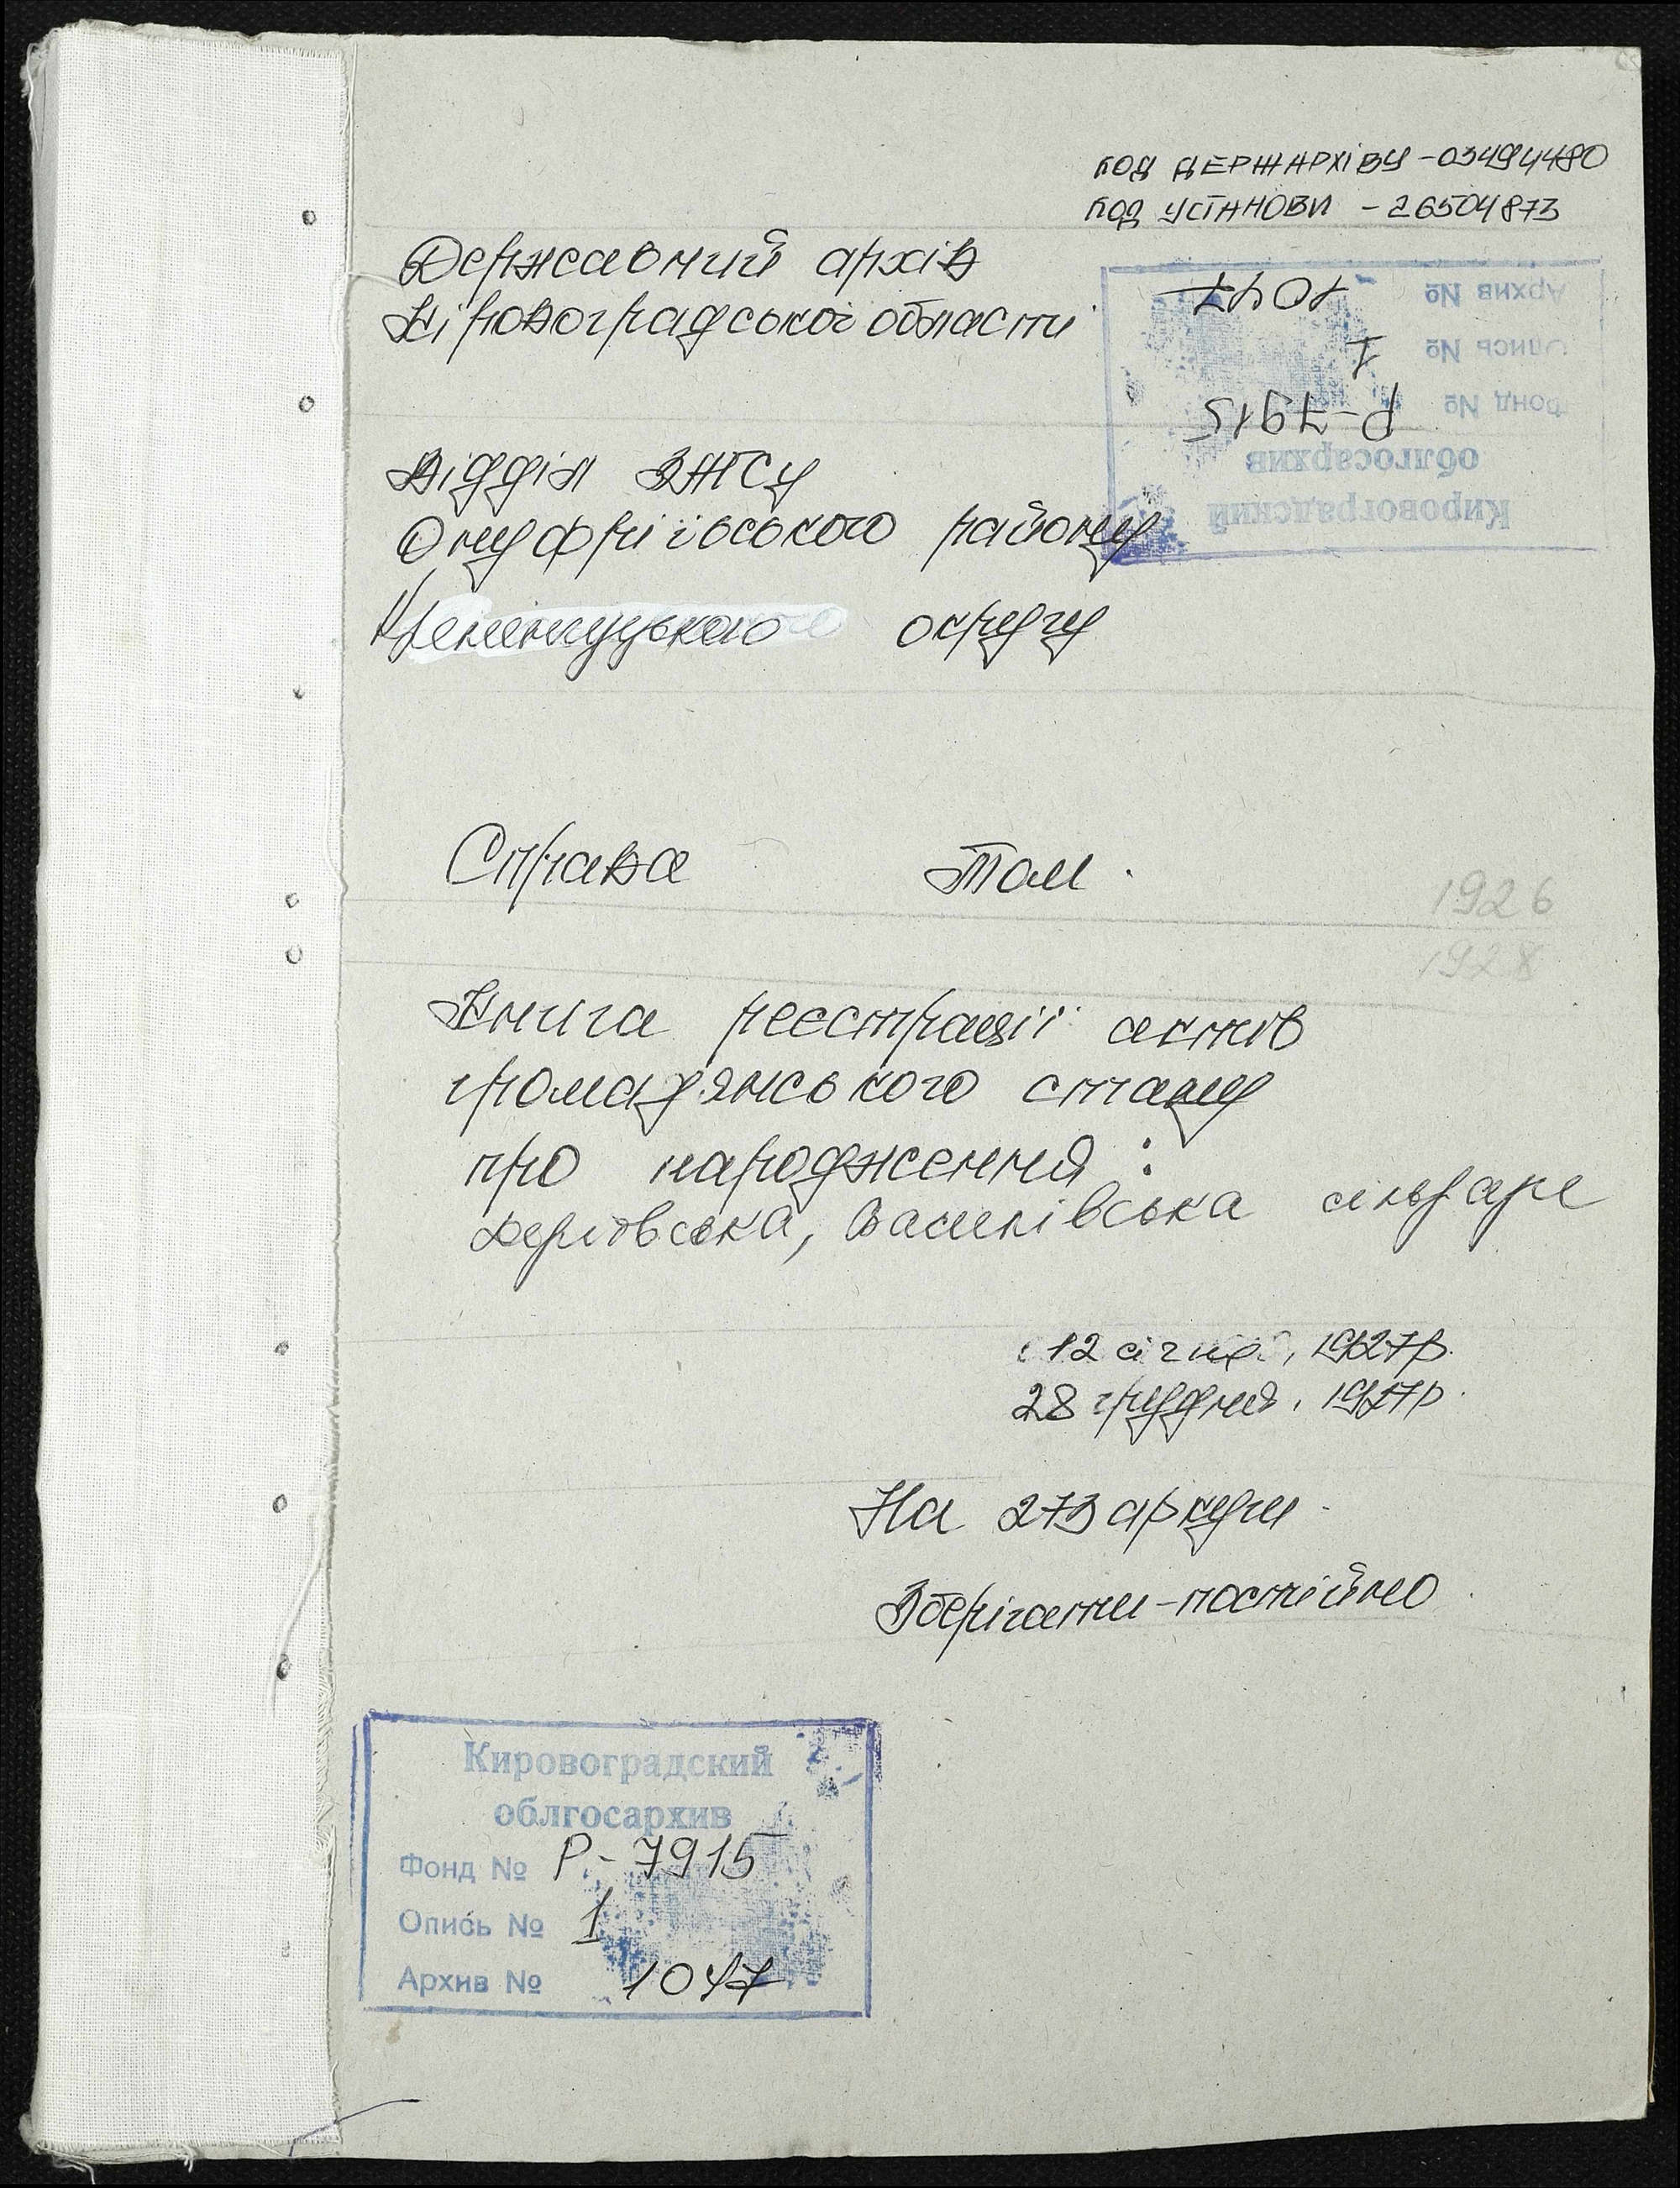 код ДЕРЖАРХІВУ - 03494480
код УСТАНОВИ - 26504873
Державний архів
Кіровоградської області
Архив № 1047
Опись № 1
Фонд № Р-7915
облгосархив
Кировоградский
Відділ ЗАГСу
Онуфріївського району
Кременчуцького округу
Справа Том
1926
1928
Книга реєстрації актів
громадянського стану
про народження:
Деріївська, Василівська сільради
12 січня, 1927р.
28 грудня, 1927р.
На 273 аркуш
Зберігати - постійно
Кировоградский
облгосархив
Фонд № Р-7915
Опись № 1
Архив № 1047